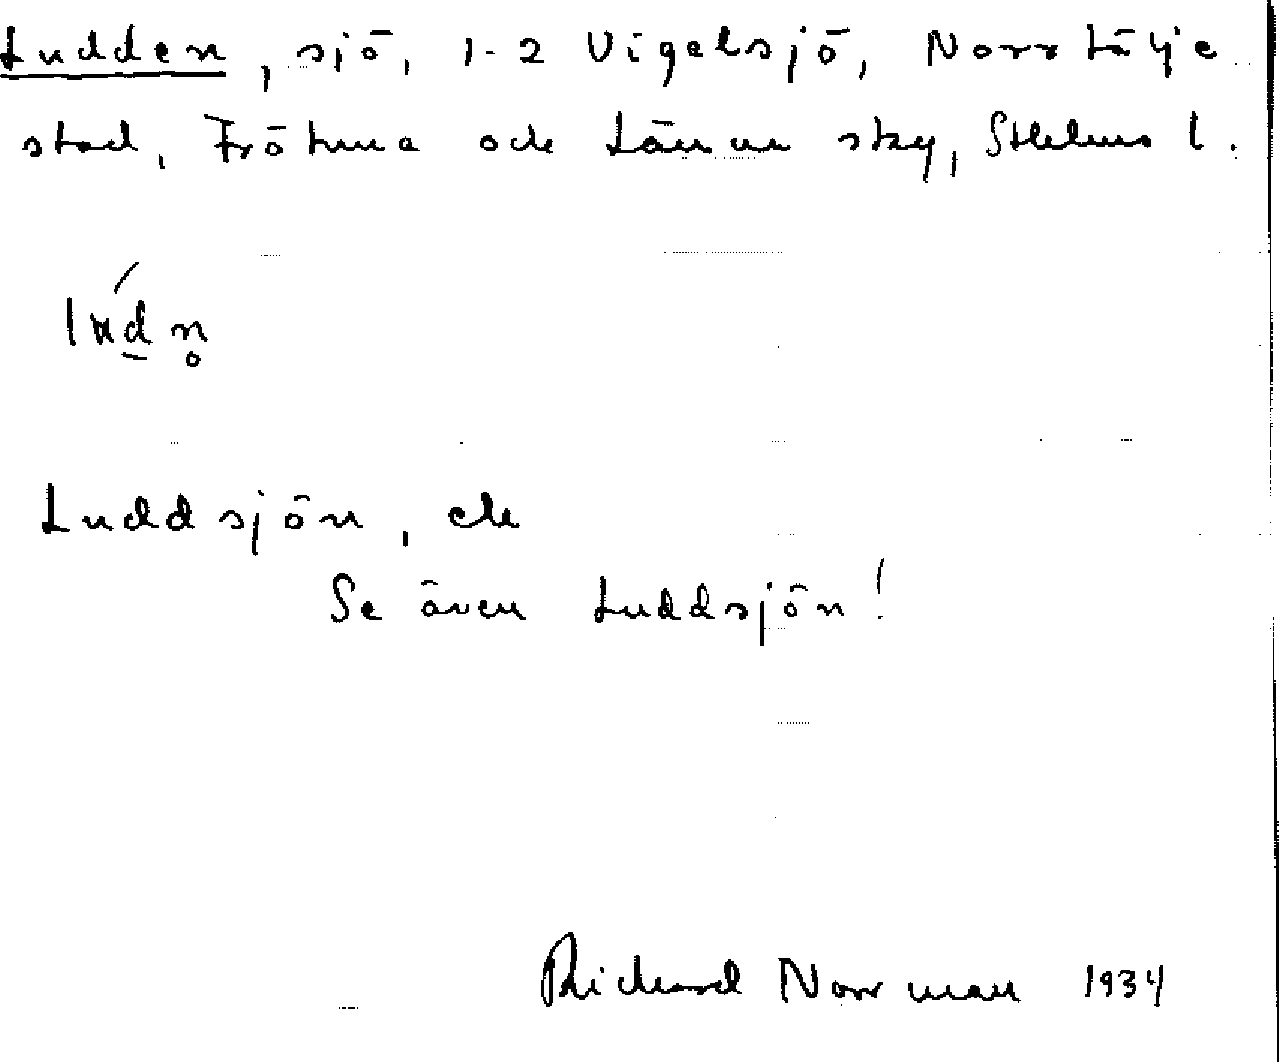 Ludden, sjö, 1-2 Vigelsjö, Norrtälje
stad, Frötuna och Länna sky, Sthlms l.
Luddsjön, ek
Se även Luddsjön!
Richard Norrman 1934